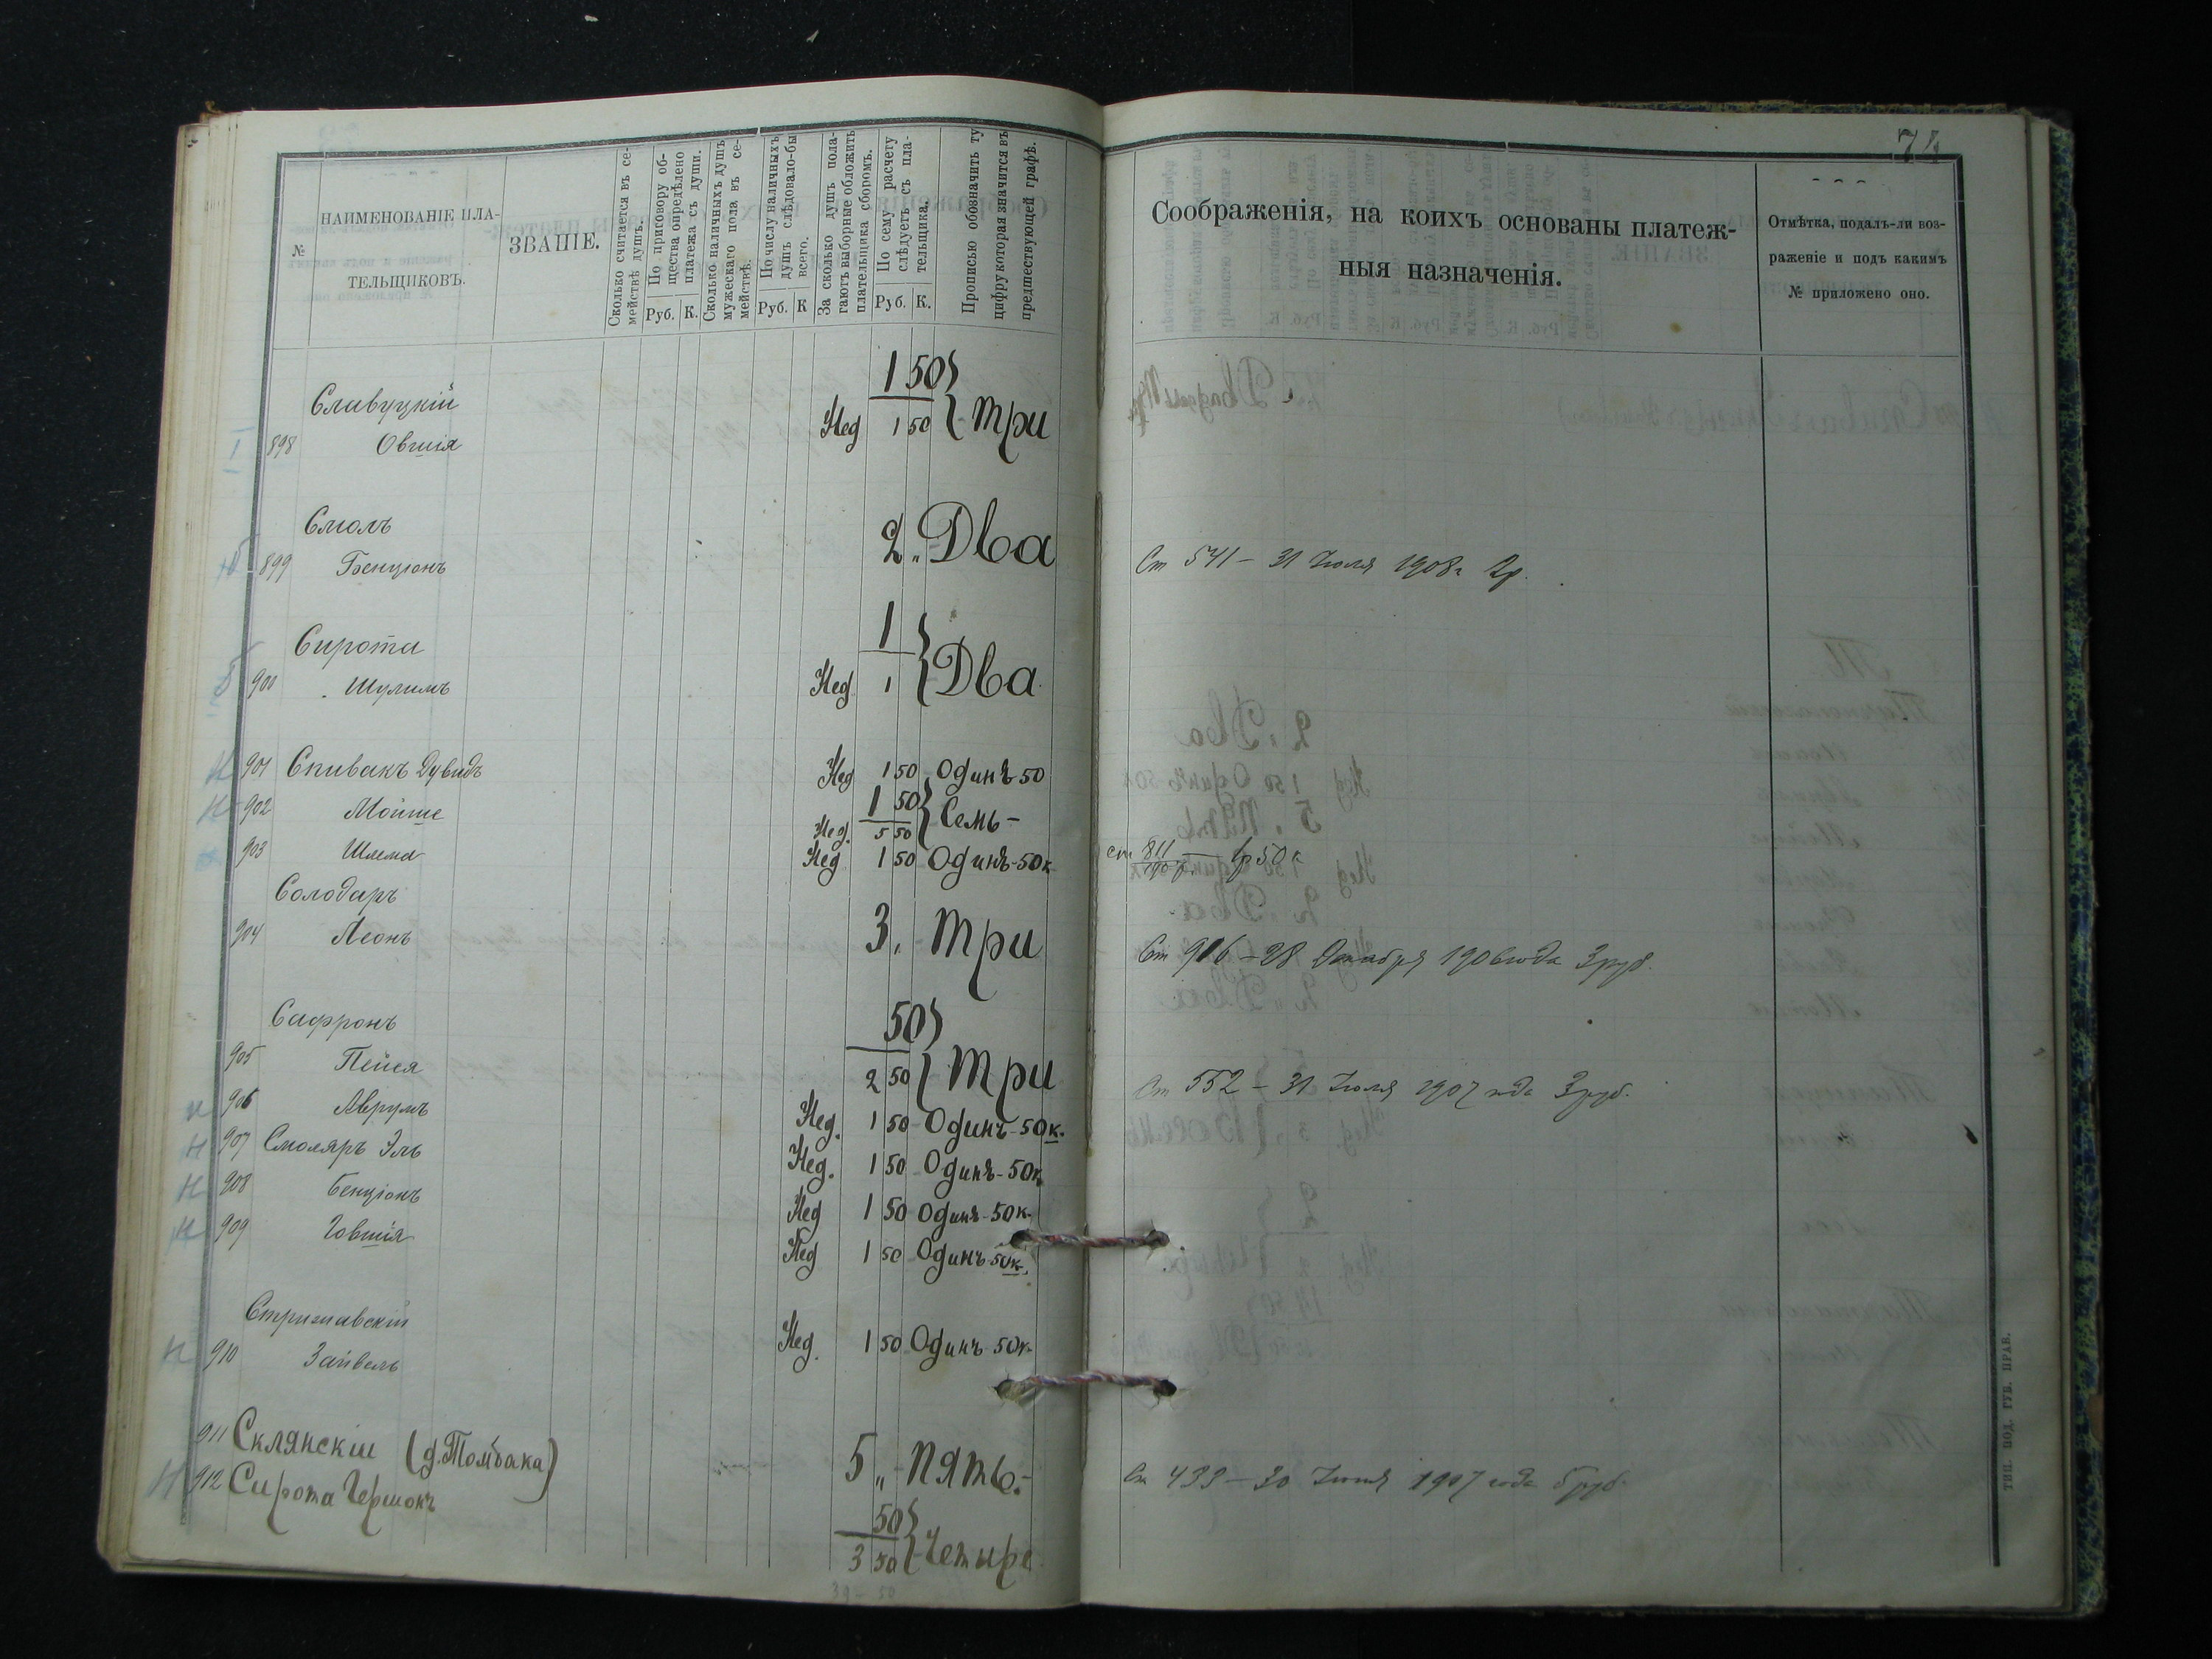 74
№
НАИМЕНОВАНІЕ ПЛА-
ТЕЛЬЩИКОВЪ.
ЗВАНІЕ.
Сколько считается въ се-
мействѣ душъ.
По приговору об-
щества опредѣлено
платежа съ души.
Руб. К.
Сколько наличныхъ душъ
мужескаго пола въ се-
мействѣ.
По числу наличныхъ
душъ слѣдовало-бы
всего.
Руб. К
За сколько душъ пола-
гаютъ выборные обложить
плательщика сборомъ.
По сему расчету
слѣдуетъ съ пла-
тельщика.
Руб. К.
Прописью обозначить ту
цифру которая значится въ
предшествующей графѣ.
Соображенія, на коихъ основаны платеж-
ныя назначенія.
Отмѣтка, подалъ-ли воз-
раженіе и подъ какимъ
№ приложено оно.
Славуцкій 1 50
898 Овшія Нед 1 50 Три
Смолъ
899 Бенціонъ 2 " Два Ст 541 — 31 Іюля 1908 г 2 р.
Сирота 1
900 Шулимъ Нед. 1 Два
901 Спивакъ Дувидъ Нед 1 50 Одинъ 50
902 Мойше 1 50
Нед. 5 50 Семь —
903 Шлема Нед 1 50 Одинъ - 50 к ст 811 — 1 р 50 к
Солодаръ
904 Леонъ 3 " Три Ст 916 — 28 Декабря 1906 года 3 руб.
Сафронъ 50
905 Пейся 2 50 Три Ст 552 — 31 Іюля 1907 года 3 руб.
906 Аврумъ Нед. 1 50 Одинъ - 50 к.
907 Смоляръ Эль Нед. 1 50 Одинъ - 50 к
908 Бенціонъ Нед 1 50 Одинъ - 50 к.
909 Говшія Нед 1 50 Одинъ 50 к.
Стрижавскій
910 Зайвель Нед. 1 50 Одинъ 50 к.
911 Склянскій (д. Томбака) 5 " Пять. - Ст 433 — 30 Іюня 1907 года 5 руб.
912 Сирота Гершонъ 50
3 50 Четыре
39 - 50
ТИП. ПОД. ГУБ. ПРАВ.